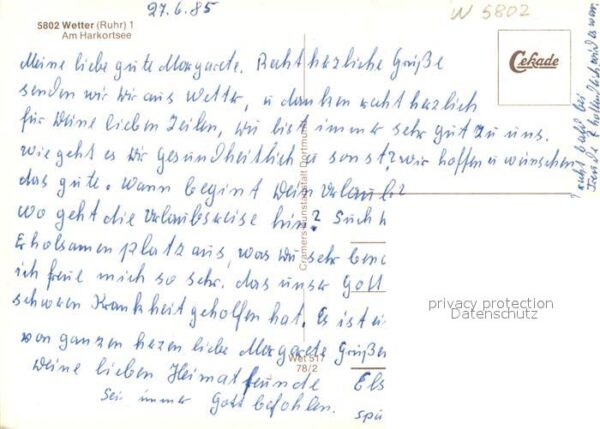 27.6.85
W 5802
5802 Wetter (Ruhr) 1
Am Harkortsee
Cekade
Meine liebe gute Margarete. Recht herzliche Grüße
senden wir Dir aus Wetter, u danken recht herzlich
für Deine lieben Zeilen, Du bist immer sehr gut zu uns.
Wie geht es Dir gesundheitlich u sonst? wir hoffen u wünschen
das gute. Wann begint Dein Urlaub?
wo geht die Urlaubsreise hin? Such
Erholsamen platz aus, was Du sehr
ich freue mich so sehr, das unser Gott
schweren Krankheit geholfen hat. Es ist
von ganzen hezen liebe Margarete Grüßen
Deine lieben Heimatfreunde Els
Sei immer Gott befohlen.
spü
Cramers Kunstanstalt Dortmund
Wet 517
78/2
privacy protection
Datenschutz